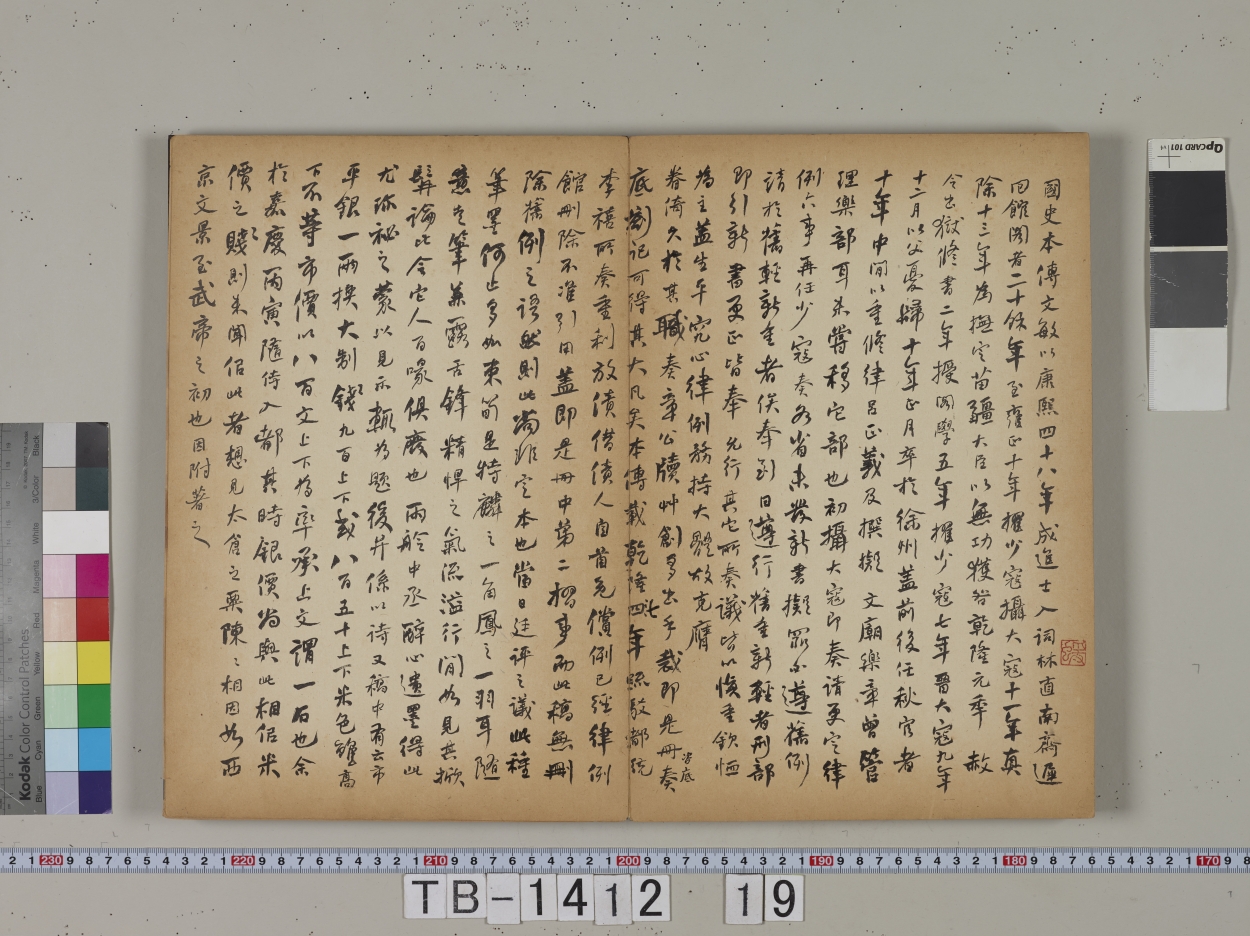 國史本傳文敏以康熙四十八年成進士入詞林直南齋遲
回館閣者二十餘年至雍正十年擢少寇攝大寇十一年真
除十三年為撫定苗疆大臣以無功獲咎乾隆元年 赦
令出獄修書二年授閣學五年擢少寇七年晉大寇九年
十二月以父憂歸十年正月卒於徐州蓋前後任秋官者
十年中間以重修律呂正義及撰擬 文廟樂章曾管
理樂部耳未嘗移它部也初攝大寇即奏請更定律
例六事再任少寇奏各省未發新書擬罪不遵舊例
請於舊輕新重者俟奉到日遵行舊重新輕者刑部
即引新書更正皆奉 允行其它所奏議皆以慎重欽恤
為主蓋生平究心律例務持大體故克膺
眷倚久於其職奏章公牘艸創多出手裁即是冊奏咨底
底劄記可得其大凡矣本傳載乾隆四年駁都統
李禧所奏重利放債借債人自首免償例已經律例
館刪除不准引用蓋即是冊中第二摺事而此稿無刪
除舊例之語然則此尚非定本也當日廷評之議此種
筆墨何止多如束筍是特麟之一角鳳之一羽耳隨
意走筆兼露舌鋒精悍之氣流溢行間如見其掀
髯論比令它人百喙俱廢也 雨舲中丞醉心遺墨得此
尤珍祕之蒙以見示輒為題後并係以詩又稿中有云市
平銀一兩換大制錢九百上下或八百五十上下米色雖高
下不等市價以八百文上下為率承上文謂一石也余
於嘉慶丙寅隨侍入都其時銀價尚與此相侣米
價之賤則未聞侣此者想見太倉之粟陳陳相因如西
京文景至武帝之初也因附著之
TB-1412 19
Kodak Color Control Patches
Blue Cyan Green Yellow Red Magenta White 3/Color Black
QPCARD 101